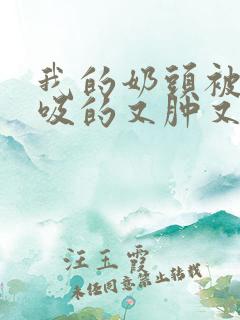 我的奶頭被
吸的又肿又
汪玉霞
未经同意禁止转载